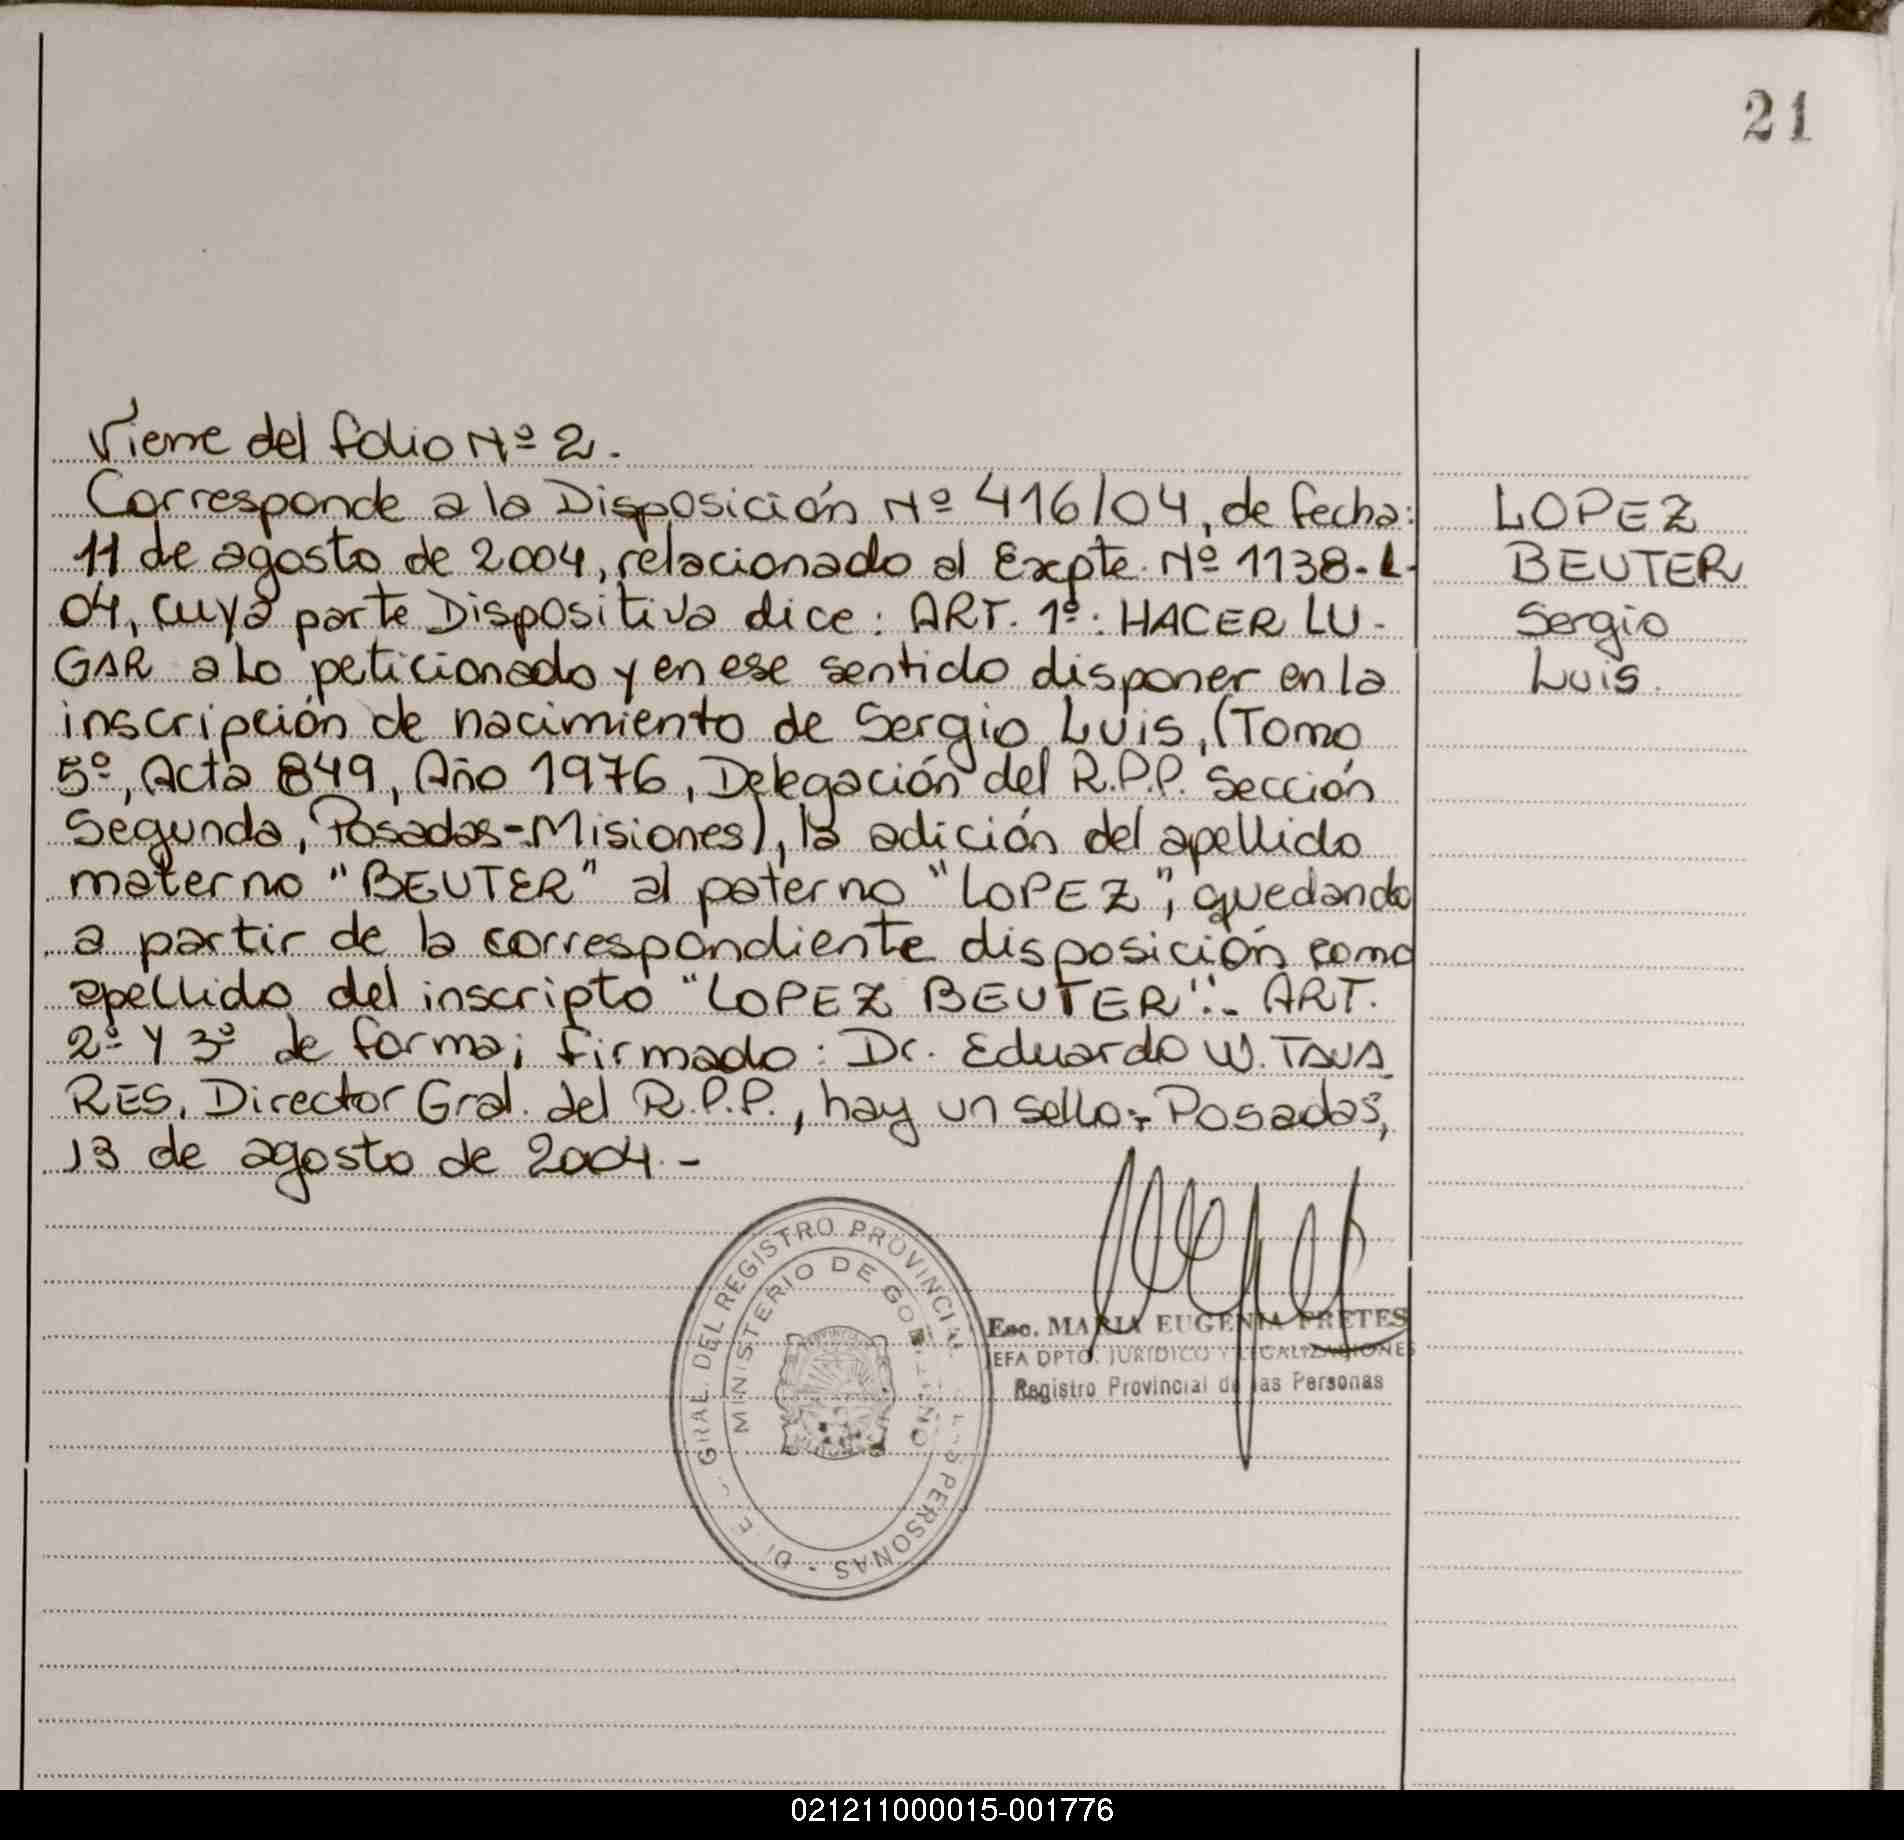 21
Viene del folio Nº 2.
Corresponde a la Disposición Nº 416/04, de fecha:
11 de agosto de 2004, relacionado al Expte. Nº 1138-L-
04, cuya parte Dispositiva dice: ART. 1º: HACER LU-
GAR a lo peticionado y en ese sentido disponer en la
inscripción de nacimiento de Sergio Luis, (Tomo
5º, Acta 849, Año 1976, Delegación del R.P.P. Sección
Segunda, Posadas-Misiones), la adición del apellido
materno "BEUTER" al paterno "LOPEZ", quedando
a partir de la correspondiente disposición como
apellido del inscripto "LOPEZ BEUTER".- ART.
2º y 3º de forma; firmado: Dr. Eduardo W. TAVA
RES, Director Gral. del R.P.P., hay un sello.- Posadas,
13 de agosto de 2004.-
LOPEZ
BEUTER
Sergio
Luis.
GRAL. DEL REGISTRO PROVINCIAL PERSONAS
MINISTERIO DE GOBIERNO
Esc. MARIA EUGENIA FRETES
JEFA DPTO. JURIDICO Y LEGALIZACIONES
Registro Provincial de las Personas
021211000015-001776